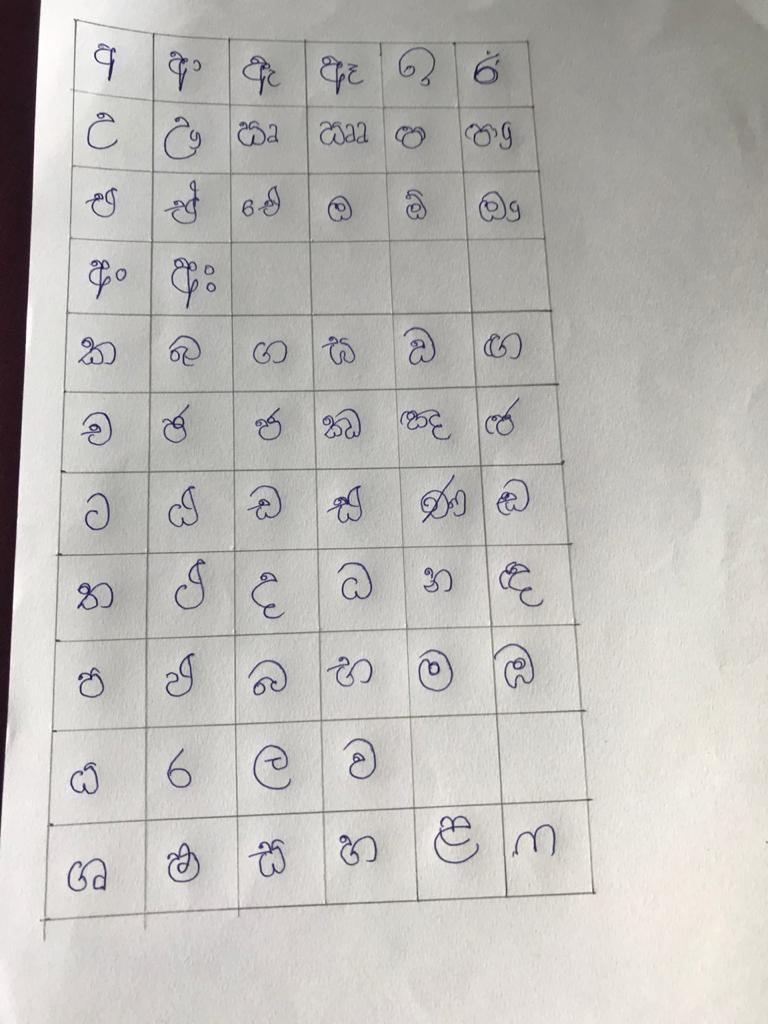 අ ආ ඇ ඈ ඉ ඊ
උ ඌ ඍ ඎ ඏ ඐ
එ ඒ ඓ ඔ ඕ ඖ
අං අඃ
ක ඛ ග ඝ ඞ ඟ
ච ඡ ජ ඣ ඤ ඦ
ට ඨ ඩ ඪ ණ ඬ
ත ථ ද ධ න ඳ
ප ඵ බ භ ම ඹ
ය ර ල ව
ශ ෂ ස හ ළ ෆ